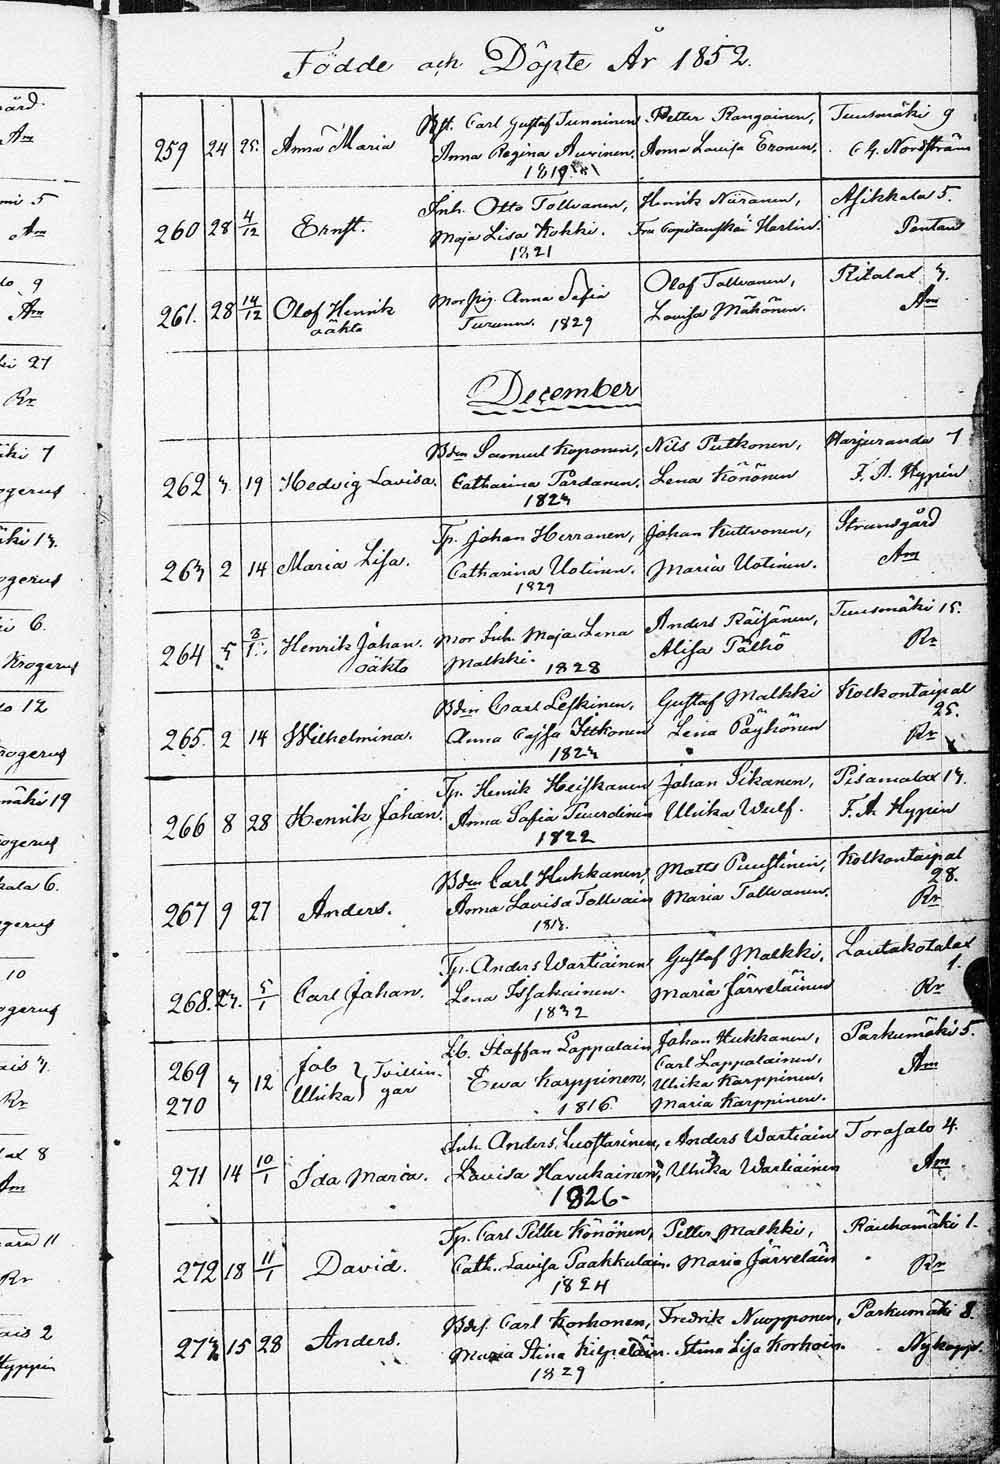 Födde och Döpte År 1852.
259 24 25. Anna Maria Carl Gustaf Tunninen Petter Rongainen, Tuusmäki 9
Anna Regina Auvinen. Anna Lovisa Eronen. Nordström
1819
260 28 4/12 Ernst. Inh. Otto Tolvanen, Henrik Niiranen, Asikkala 5.
Maja Lisa Kokki. Fru Harlin.
1821
261. 28 14/12 Olof Henrik Mor pig. Anna Sofia Olof Tolvanen, Ritalax 3.
oäkta Turunen. 1829 Lovisa Mähönen. Am
December
262 3. 19 Hedvig Lovisa. Bden Samuel Koponen, Nils Putkonen, Harjuranda 7
Catharina Pardanen. Lena Könönen F. A. Hypén
1823
263 2 14 Maria Lisa. Tp. Johan Herranen, Johan Kuttvonen, Strumsgård
Catharina Uotinen. Maria Uotinen. Am
1829
264 5 3/1. Henrik Johan. Mor Inh. Maja Lena Anders Räisänen, Tuusmäki 15.
oäkta Malkki. 1828 Alisa Pälhö Rr
265. 2 14 Wilhelmina. Bden Carl Leskinen, Gustaf Malkki Kolkontaipal
25.
Anna Cajsa Ittkonen Lena Päyhönen Rr
1823
266 8 28 Henrik Johan. Tp. Henrik Heiskanen Johan Sikanen, Pisamalax 13.
Anna Sofia Ulrika Wulf. F. A. Hypén
1822
267 9 27 Anders. Bden Carl Hukkanen, Matts Puustinen, Kolkontaipal
28.
Anna Lovisa Tollvain Maria Tollvanen. Rr
1813.
268. 23. 5/1 Carl Johan. Tp. Anders Wartiainen Gustaf Malkki, Lautakotalax
1.
Lena Issakainen. Maria Järveläinen Rr
1832
269 Job Lb. Staffan Lappalain Johan Hukkanen, Parkumäki 5.
3 12 Tvillin- Carl Lappalainen, Am
270 Ulrika gar Ewa Karppinen, Ulrika Karppinen,
1816 Maria Karppinen.
271 14 10/1 Ida Maria. Inh. Anders Luostarinen, Anders Wartiain Torasalo 4.
Lovisa Havukainen, Ulrika Wartiainen Am
1826-
272 18 11/1 David. Tp. Carl Petter Könönen, Petter Malkki, Rauhamäki 1.
Cath. Lovisa Paakkulain. Maria Järveläin Rr
1824
273 15 28 Anders. Bds. Carl Korhonen, Fredrik Nuopponen, Parkumäki 8.
Maria Stina Kilpeläin. Stina Lisa Korhoin. Nykopp.
1829